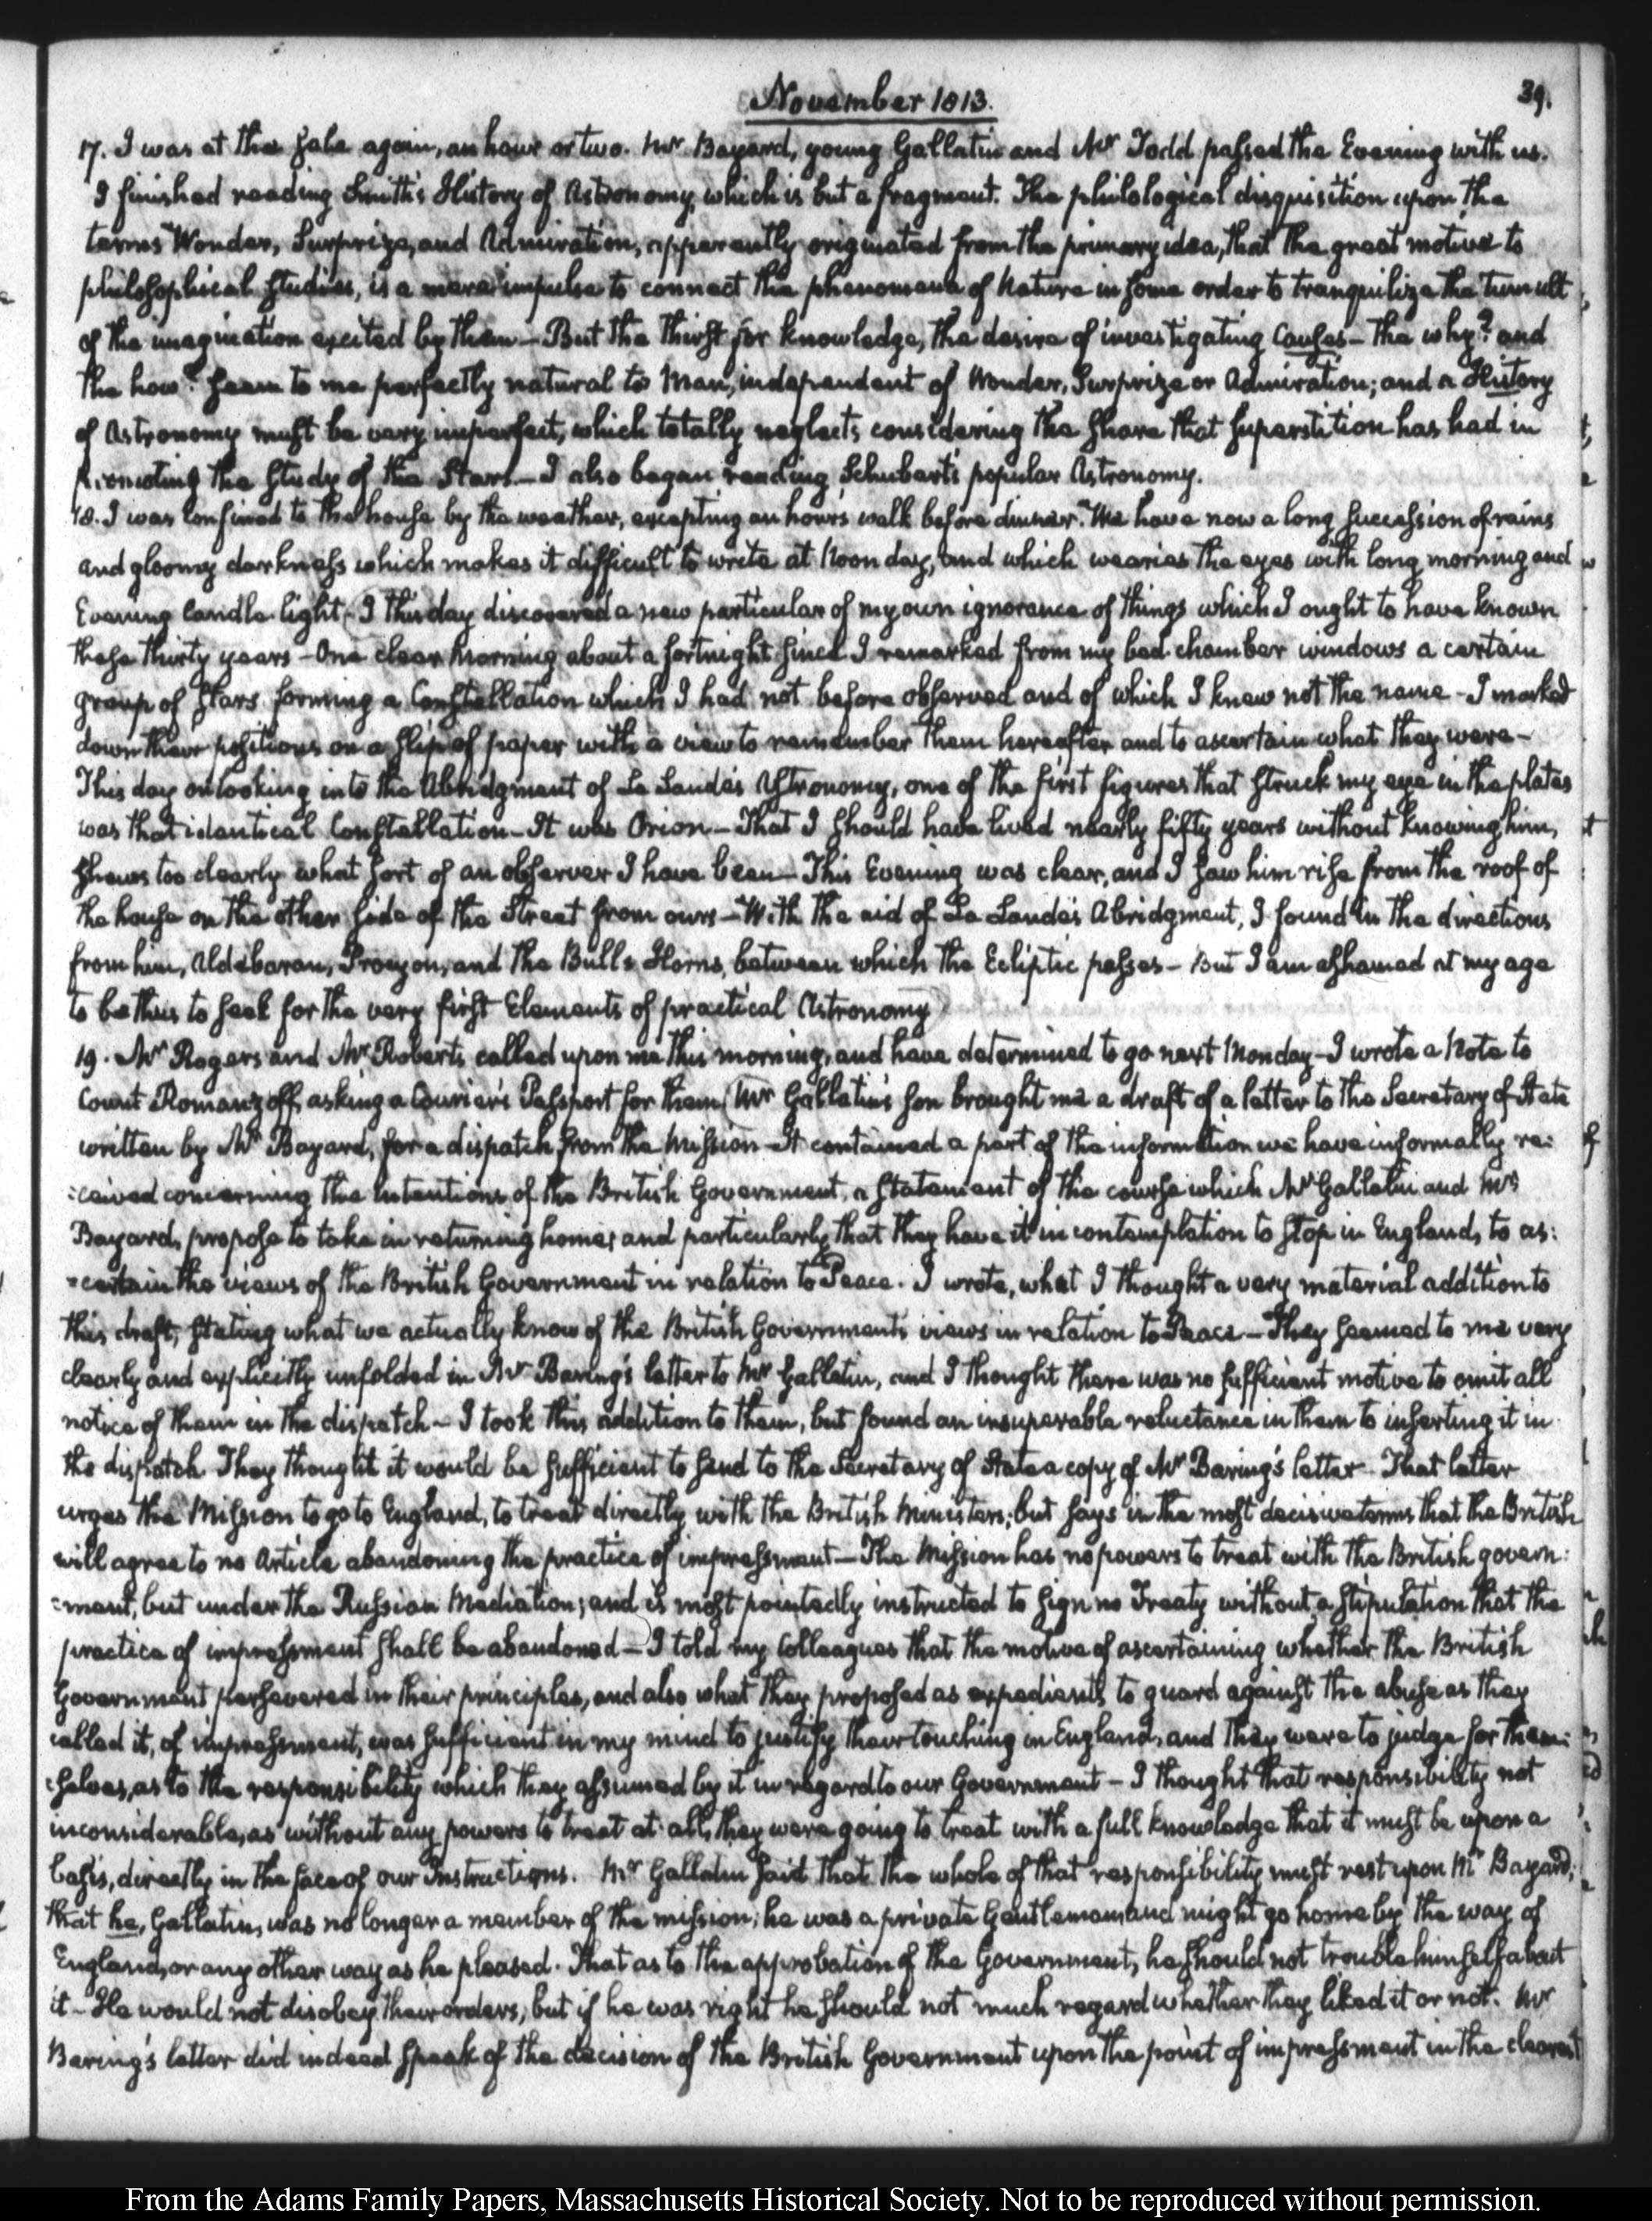 November 1813.
39.
17. I was at the Sale again, an hour or two. Mr Bayard, young Gallatin and Mr Todd passed the Evening with us.
I finished reading Smith's History of Astronomy, which is but a fragment. The philological disquisition upon the
terms Wonder, Surprize, and Admiration, apparently originated from the primary idea, that the great motive to
philosophical studies, is a mere impulse to connect the phenomena of Nature in some order to tranquilize the tumult
of the imagination excited by them — But the thirst for knowledge, the desire of investigating Causes — the why? and
the how? seem to me perfectly natural to Man, independent of Wonder, Surprize or Admiration; and a History
of Astronomy must be very imperfect, which totally neglects considering the share that superstition has had in
promoting the study of the Stars — I also began reading Schubert's popular Astronomy.
18. I was confined to the house by the weather, excepting an hours walk before dinner. We have now a long succession of rains
and gloomy darkness which makes it difficult to write at Noon day, and which wearies the eyes with long morning and
Evening candle-light — I this day discovered a new particular of my own ignorance of things which I ought to have known
these thirty years — One clear Morning about a fortnight since I remarked from my bed-chamber windows a certain
group of Stars forming a Constellation which I had not before observed and of which I knew not the name — I marked
down their positions on a slip of paper with a view to remember them hereafter and to ascertain what they were —
This day on looking into the Abridgment of La Lande's Astronomy, one of the first figures that struck my eye in the plates
was that identical Constellation — It was Orion — That I should have lived nearly fifty years without knowing him,
shews too clearly what sort of an observer I have been — This Evening was clear, and I saw him rise from the roof of
the house on the other side of the Street from ours — With the aid of La Lande's Abridgment, I found in the directions
from him, Aldebaran, Procyon, and the Bull's Horns, between which the Ecliptic passes — But I am ashamed at my age
to be thus to seek for the very first Elements of practical Astronomy
19. Mr Rogers and Mr Roberts called upon me this morning, and have determined to go next Monday — I wrote a Note to
Count Romanzoff, asking a Courier's Passport for them. Mr Gallatin's son brought me a draft of a letter to the Secretary of State
written by Mr Bayard, for a dispatch from the Mission — It contained a part of the information we have informally re:
:ceived concerning the Intentions of the British Government, a statement of the course which Mr Gallatin and Mr
Bayard, propose to take in returning home; and particularly that they have it in contemplation to stop in England, to as:
:certain the views of the British Government in relation to Peace. I wrote, what I thought a very material addition to
this draft, stating what we actually know of the British Government's views in relation to Peace — They seemed to me very
clearly and explicitly unfolded in Mr Baring's letter to Mr Gallatin, and I thought there was no sufficient motive to omit all
notice of them in the dispatch — I took this addition to them, but found an insuperable reluctance in them to inserting it in
the dispatch. They thought it would be sufficient to send to the Secretary of State a copy of Mr Baring's letter — That letter
urges the Mission to go to England, to treat directly with the British Ministers; but says in the most decisive terms that the British
will agree to no Article abandoning the practice of impressment — The Mission has no powers to treat with the British govern:
:ment, but under the Russian Mediation; and is most pointedly instructed to sign no Treaty without a stipulation that the
practice of impressment shall be abandoned — I told my Colleagues that the motive of ascertaining whether the British
Government persevered in their principles, and also what they proposed as expedients to guard against the abuse as they
called it, of impressment, was sufficient in my mind to justify their touching in England, and they were to judge for them:
:selves, as to the responsibility which they assumed by it in regard to our Government — I thought that responsibility not
inconsiderable, as without any powers to treat at all, they were going to treat with a full knowledge that it must be upon a
basis, directly in the face of our Instructions. Mr Gallatin said that the whole of that responsibility must rest upon Mr Bayard;
that he, Gallatin, was no longer a member of the mission; he was a private Gentleman, and might go home by the way of
England, or any other way as he pleased. That as to the approbation of the Government, he should not trouble himself about
it — He would not disobey their orders, but if he was right he should not much regard whether they liked it or not. Mr
Baring's letter did indeed speak of the decision of the British Government upon the point of impressment in the clearest
From the Adams Family Papers, Massachusetts Historical Society. Not to be reproduced without permission.